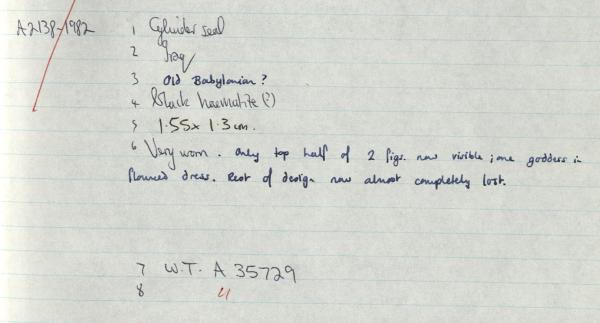 A2138-1982
1 Cylinder seal
2 Iraq
3 Old Babylonian?
4 Black haematite (?)
5 1.55 x 1.3 cm.
6 Very worn. Only top half of 2 figs. now visible; one goddess in
flounced dress. Rest of design now almost completely lost.
7 W.T. A 35729
8